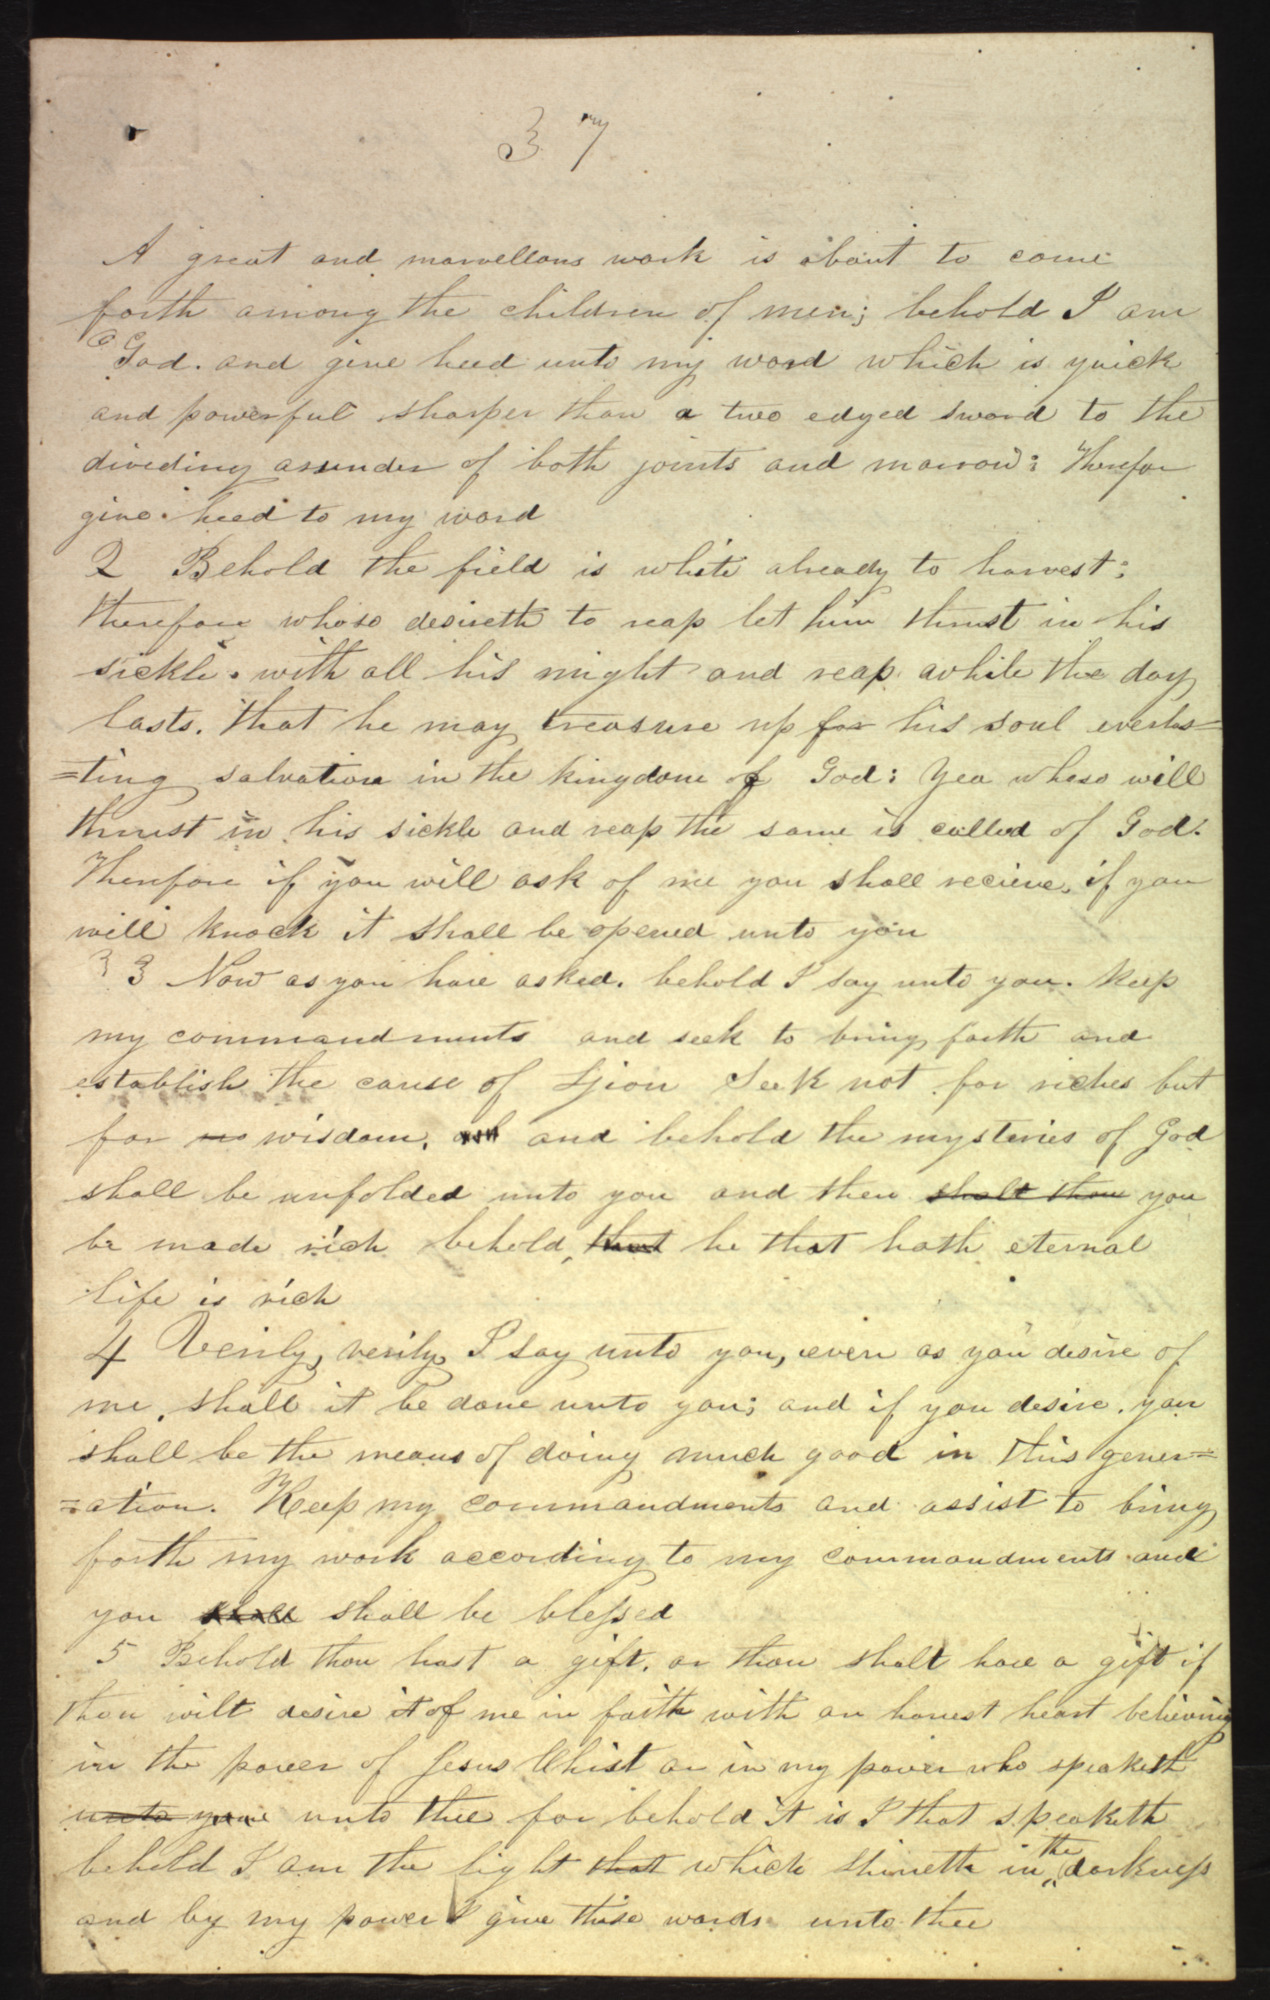 37
A great and marvellous work is about to come
forth among the children of men; behold I am
God. and give heed unto my word which is quick
and powerful sharper than a two edged sword to the
dividing asunder of both joints and marrow: Therefor
give heed to my word
2 Behold the field is white already to harvest:
therefore whoso desireth to reap let him thrust in his
sickle. with all his might and reap while the day
lasts. that he may treasure up for his soul everlas=
=ting salvation in the kingdom of God: Yea whoso will
thrust in his sickle and reap the same is called of God.
Therefore if you will ask of me you shall recieve, if you
will knock it shall be opened unto you
3 3 Now as you have asked. behold I say unto you. Keep
my commandments and seek to bring forth and
establish the cause of Zion Seek not for riches but
for wisdom. and behold the mysteries of God
shall be unfolded unto you and then shalt thou you
be made rich behold, that he that hath eternal
life is rich
4 Verily, verily, I say unto you, even as you desire of
me, shall it be done unto you; and if you desire, you
shall be the means of doing much good in this gener=
=ation. Keep my commandments and assist to bring
forth my work according to my commandments and
you shall shall be blessed
5 Behold thou hast a gift, or thou shalt have a gift if
thou wilt desire it of me in faith with an honest heart believing
in the power of Jesus Christ or in my power who speaketh
unto you unto thee for behold it is I that speaketh
behold I am the light that which shineth in the darkness
and by my power I give these words unto thee